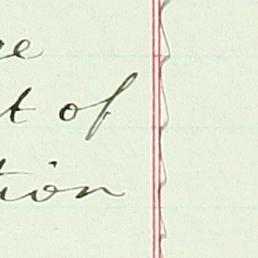 ge
t of
tion